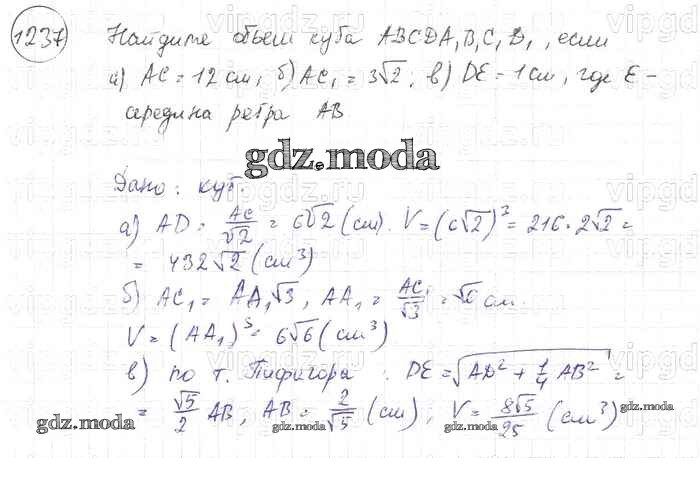 1237 Найдите объем куба ABCDA₁B₁C₁D₁, если
а) AC = 12 см, б) AC₁ = 3√2; в) DE = 1 см, где E -
середина ребра AB
gdz.moda
Дано: куб.
а) AD = AC/√2 = 6√2 (см). V = (6√2)³ = 216·2√2 =
= 432√2 (см³)
б) AC₁ = AA₁√3, AA₁ = AC₁/√3 = √6 см.
V = (AA₁)³ = 6√6 (см³)
в) по т. Пифагора: DE = √(AD² + 1/4 AB²) =
= √5/2 AB, AB = 2/√5 (см), V = 8√5/25 (см³)
gdz.moda gdz.moda gdz.moda
vipgdz.ru